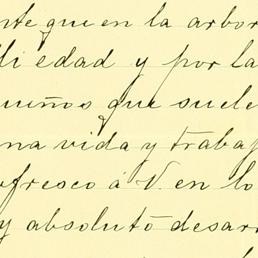 nte que en la arbor
di edad y por la
ueños que suele
na vida y trabaj
ofresco á V. en lo
y absoluto desarr